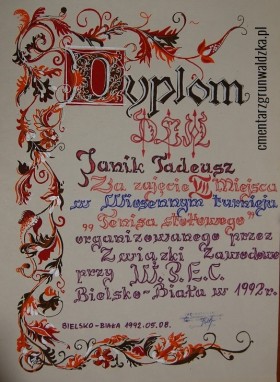 Dyplom
DLA
Janik Tadeusz
Za zajęcie VII Miejsca
w Wiosennym turnieju
,, Tenisa stołowego "
organizowanego przez
Związki Zawodowe
przy W.P.E.C.
Bielsko-Biała w 1992r.
BIELSKO-BIAŁA 1992.05.08.
cmentarzgrunwaldzka.pl